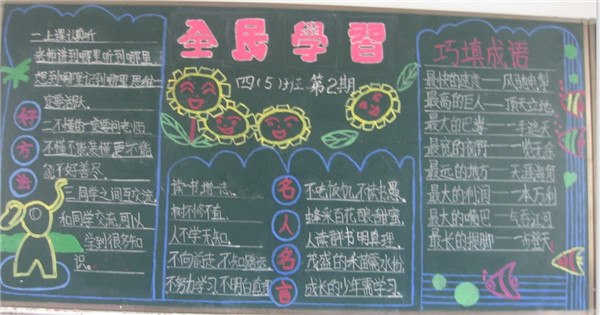 全民學習
四(5)班 第2期
好方法
一上课认真听
老师讲到哪里听到哪里
想到哪里记到哪里思
一定要活跃
二不懂的一定要问老师
不懂不能装懂更不能
三同学之间互交流
和同学交流可以
学到很多知
识。
名人名言
读书增
树不修不直,
人不学无知。
不向前走,不知路远。
不努力学习,不明白真理
不吃饭饥,不读书愚。
蜂采百花酿甜蜜,
人读群书明真理。
茂盛的禾苗需水份
成长的少年需学习
巧填成语
最快的速度——风驰电掣
最高的巨人——顶天立地
最大的巴掌——一手遮天
最宽的视野——一览无余
最远的地方——天涯海角
最大的利润——一本万利
最大的嘴巴——气吞
最长的腿脚——一步登天